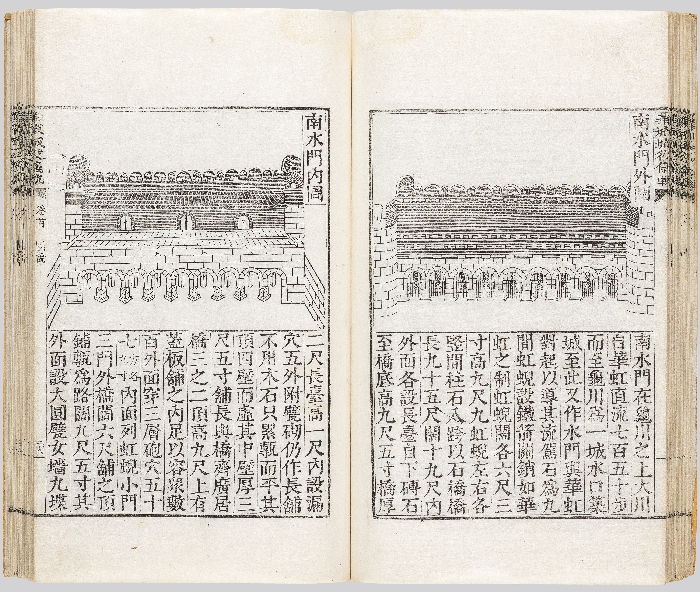 南水門外圖
南水門在龜川之上大川
自華虹直流七百五十步
而至龜川爲一城水口築
城至此又作水門與華虹
對起以導其流甃石爲九
間虹蜺設鐵箭關鎖如華
虹之制虹蜺闊各六尺三
寸高九尺九虹蜺左右各
竪間柱石跨以石橋橋
長九十五尺闊十九尺內
外面各設長臺自下磚石
至橋底高九尺五寸橋厚
南水門內圖
二尺長臺高一尺內設漏
穴五外附甓砌仍作長舖
不用木石只累甎而平其
頂四壁而虛其中壁厚三
尺五寸舖長與橋齊廣居
橋三之二頂高九尺上有
蓋板舖之內足以容衆數
百外面穿三層砲穴五十
七內面列虹蜺小門
三門外橋闊六尺舖之頂
舖甎爲路闊九尺五寸其
外面設大圓甓女墻九堞